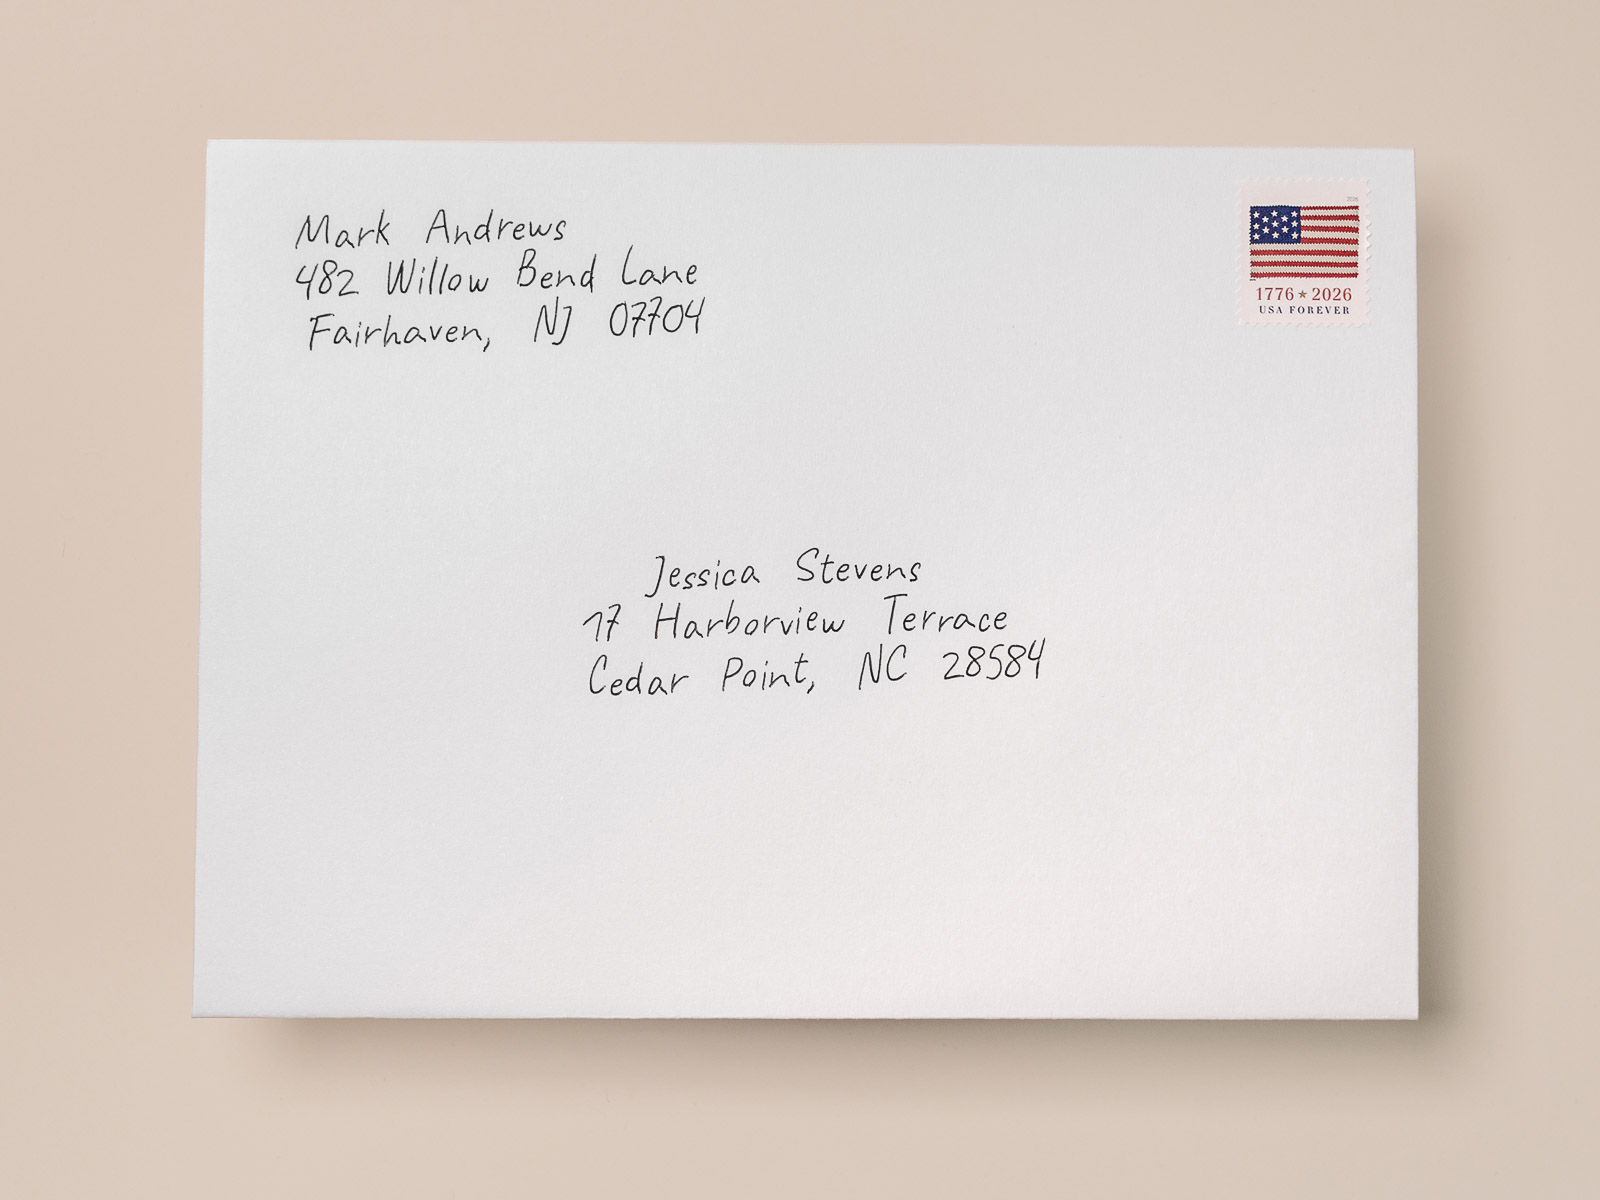 Mark Andrews
482 Willow Bend Lane
Fairhaven, NJ 07704
2026
1776 ★ 2026
USA FOREVER
Jessica Stevens
17 Harborview Terrace
Cedar Point, NC 28584